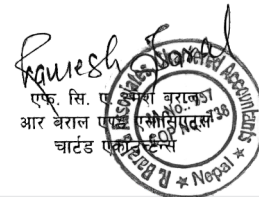 Ramesh Baral
एफ. सि. ए. रमेश बराल
आर बेराल एण्ड एसोसिएट्स
चार्टड एकाउन्टेन्स
R. Baral & Associates, Chartered Accountants
COP No. 738
* Nepal *